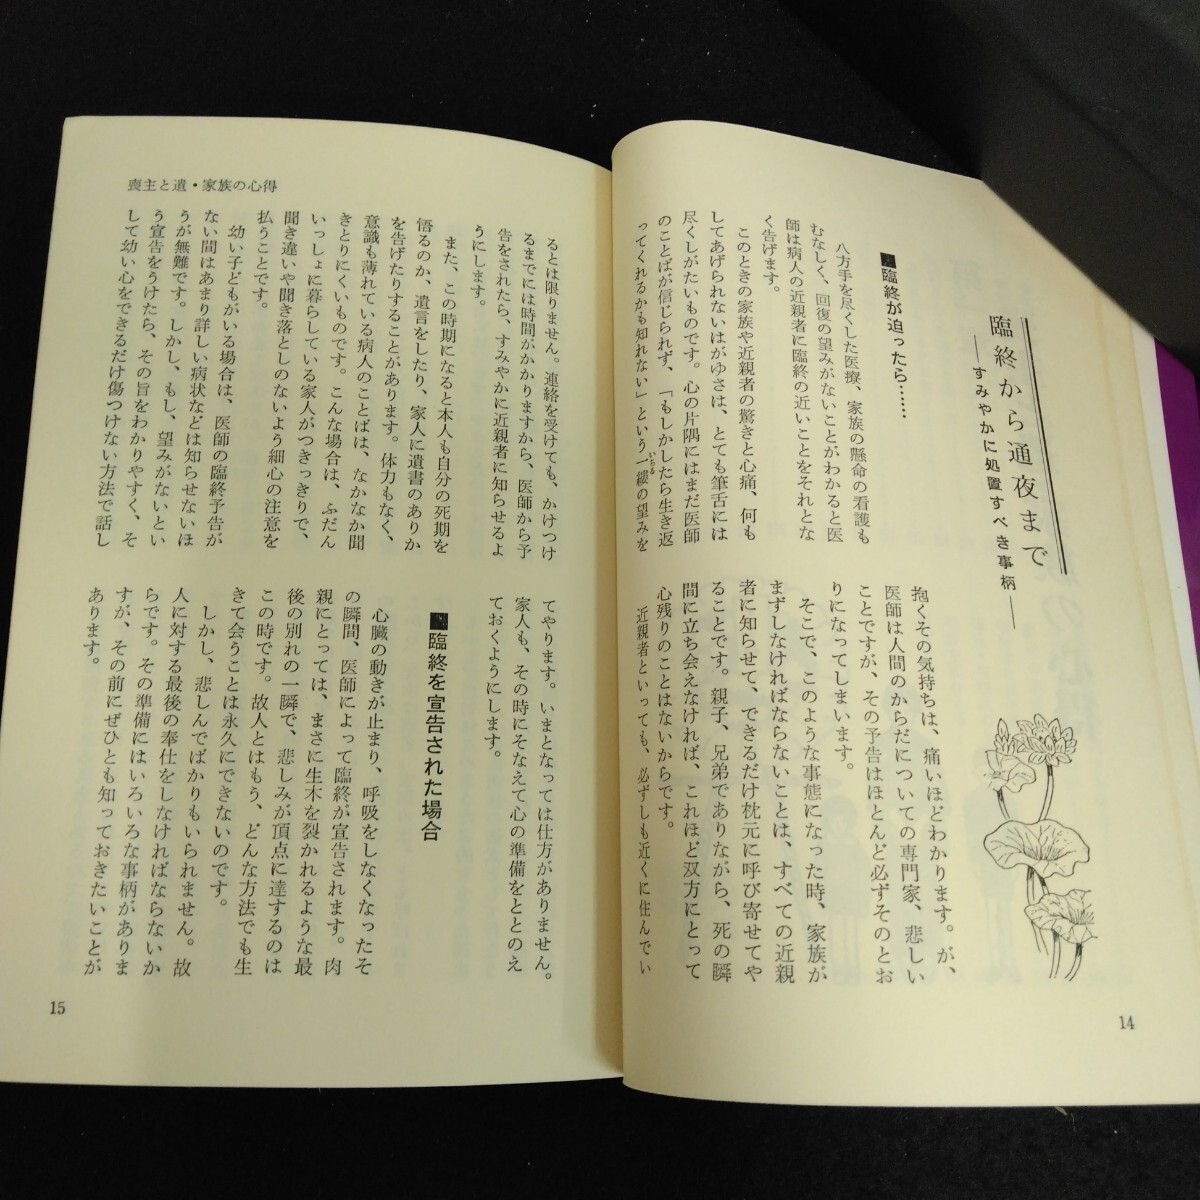 臨終から通夜まで
――すみやかに処置すべき事柄――
■臨終が迫ったら……
八方手を尽くした医療、家族の懸命の看護も
むなしく、回復の望みがないことがわかると医
師は病人の近親者に臨終の近いことをそれとな
く告げます。
このときの家族や近親者の驚きと心痛、何も
してあげられないはがゆさは、とても筆舌には
尽くしがたいものです。心の片隅にはまだ医師
のことばが信じられず、「もしかしたら生き返
ってくれるかも知れない」という一縷の望みを
いちる
抱くその気持ちは、痛いほどわかります。が、
医師は人間のからだについての専門家、悲しい
ことですが、その予告はほとんど必ずそのとお
りになってしまいます。
そこで、このような事態になった時、家族が
まずしなければならないことは、すべての近親
者に知らせて、できるだけ枕元に呼び寄せてや
ることです。親子、兄弟でありながら、死の瞬
間に立ち会えなければ、これほど双方にとって
心残りのことはないからです。
近親者といっても、必ずしも近くに住んでい
14
喪主と遺・家族の心得
るとは限りません。連絡を受けても、かけつけ
るまでには時間がかかりますから、医師から予
告をされたら、すみやかに近親者に知らせるよ
うにします。
また、この時期になると本人も自分の死期を
悟るのか、遺言をしたり、家人に遺書のありか
を告げたりすることがあります。体力もなく、
意識も薄れている病人のことばは、なかなか聞
きとりにくいものです。こんな場合は、ふだん
いっしょに暮らしている家人がつきっきりで、
聞き違いや聞き落としのないよう細心の注意を
払うことです。
幼い子どもがいる場合は、医師の臨終予告が
ない間はあまり詳しい病状などは知らせないほ
うが無難です。しかし、もし、望みがないとい
う宣告をうけたら、その旨をわかりやすく、そ
して幼い心をできるだけ傷つけない方法で話し
てやります。いまとなっては仕方がありません。
家人も、その時にそなえて心の準備をととのえ
ておくようにします。
■臨終を宣告された場合
心臓の動きが止まり、呼吸をしなくなったそ
の瞬間、医師によって臨終が宣告されます。肉
親にとっては、まさに生木を裂かれるような最
後の別れの一瞬で、悲しみが頂点に達するのは
この時です。故人とはもう、どんな方法でも生
きて会うことは永久にできないのです。
しかし、悲しんでばかりもいられません。故
人に対する最後の奉仕をしなければならないか
らです。その準備にはいろいろな事柄がありま
すが、その前にぜひとも知っておきたいことが
あります。
15